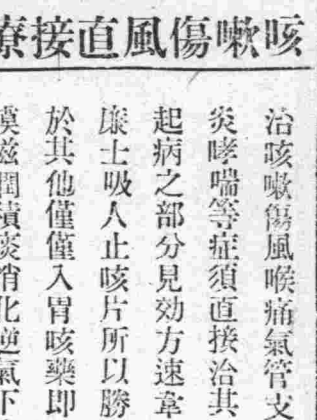 咳嗽傷風直接療
治咳嗽傷風喉痛氣管支
炎哮喘等症須直接治其
起病之部分見効方速韋
廉士吸入止咳片所以勝
於其他僅僅入胃咳藥即
滋潤積痰消化逆氣下